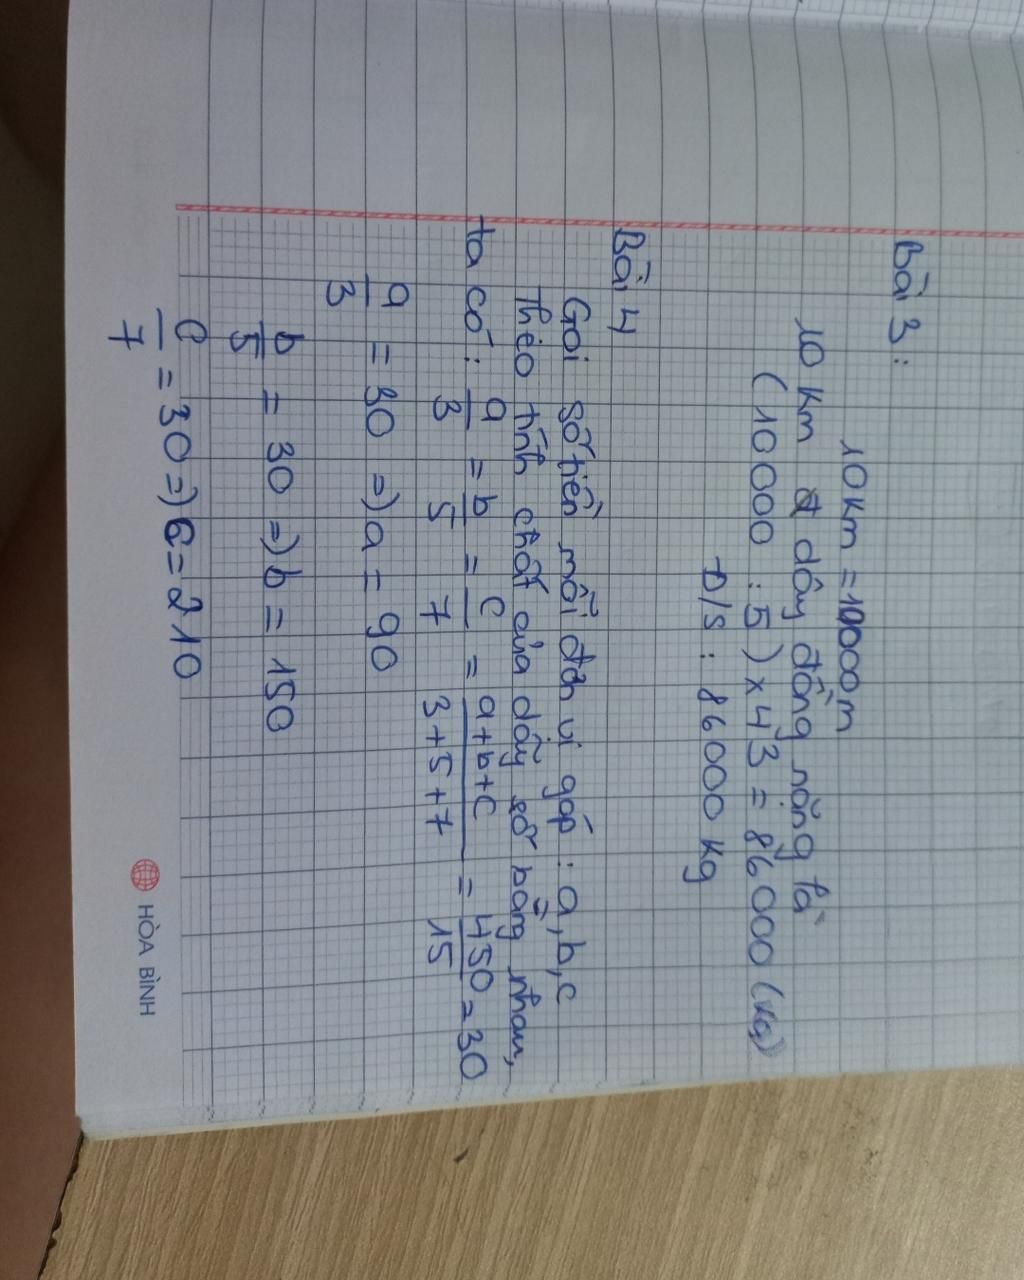 Bài 3:
10km = 10000m
10 km dây đồng nặng là
(10000 : 5) x 43 = 86000 (kg)
Đ/S : 86000 kg
Bài 4
Gọi số tiền mỗi đơn vị góp : a, b, c
Theo tính chất của dãy số bằng nhau,
ta có : a/3 = b/5 = c/7 = a+b+c/3+5+7 = 450/15 = 30
a/3 = 30 => a = 90
b/5 = 30 => b = 150
c/7 = 30 => c = 210
HÒA BÌNH